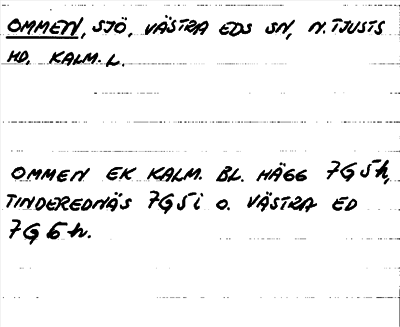 OMMEN, SJÖ, VÄSTRA EDS SN, N. TJUSTS
HD, KALM. L.
OMMEN EK KALM. BL. HÄGG 7G5h,
TINDEREDNÄS 7G5i O. VÄSTRA ED
7G6h.